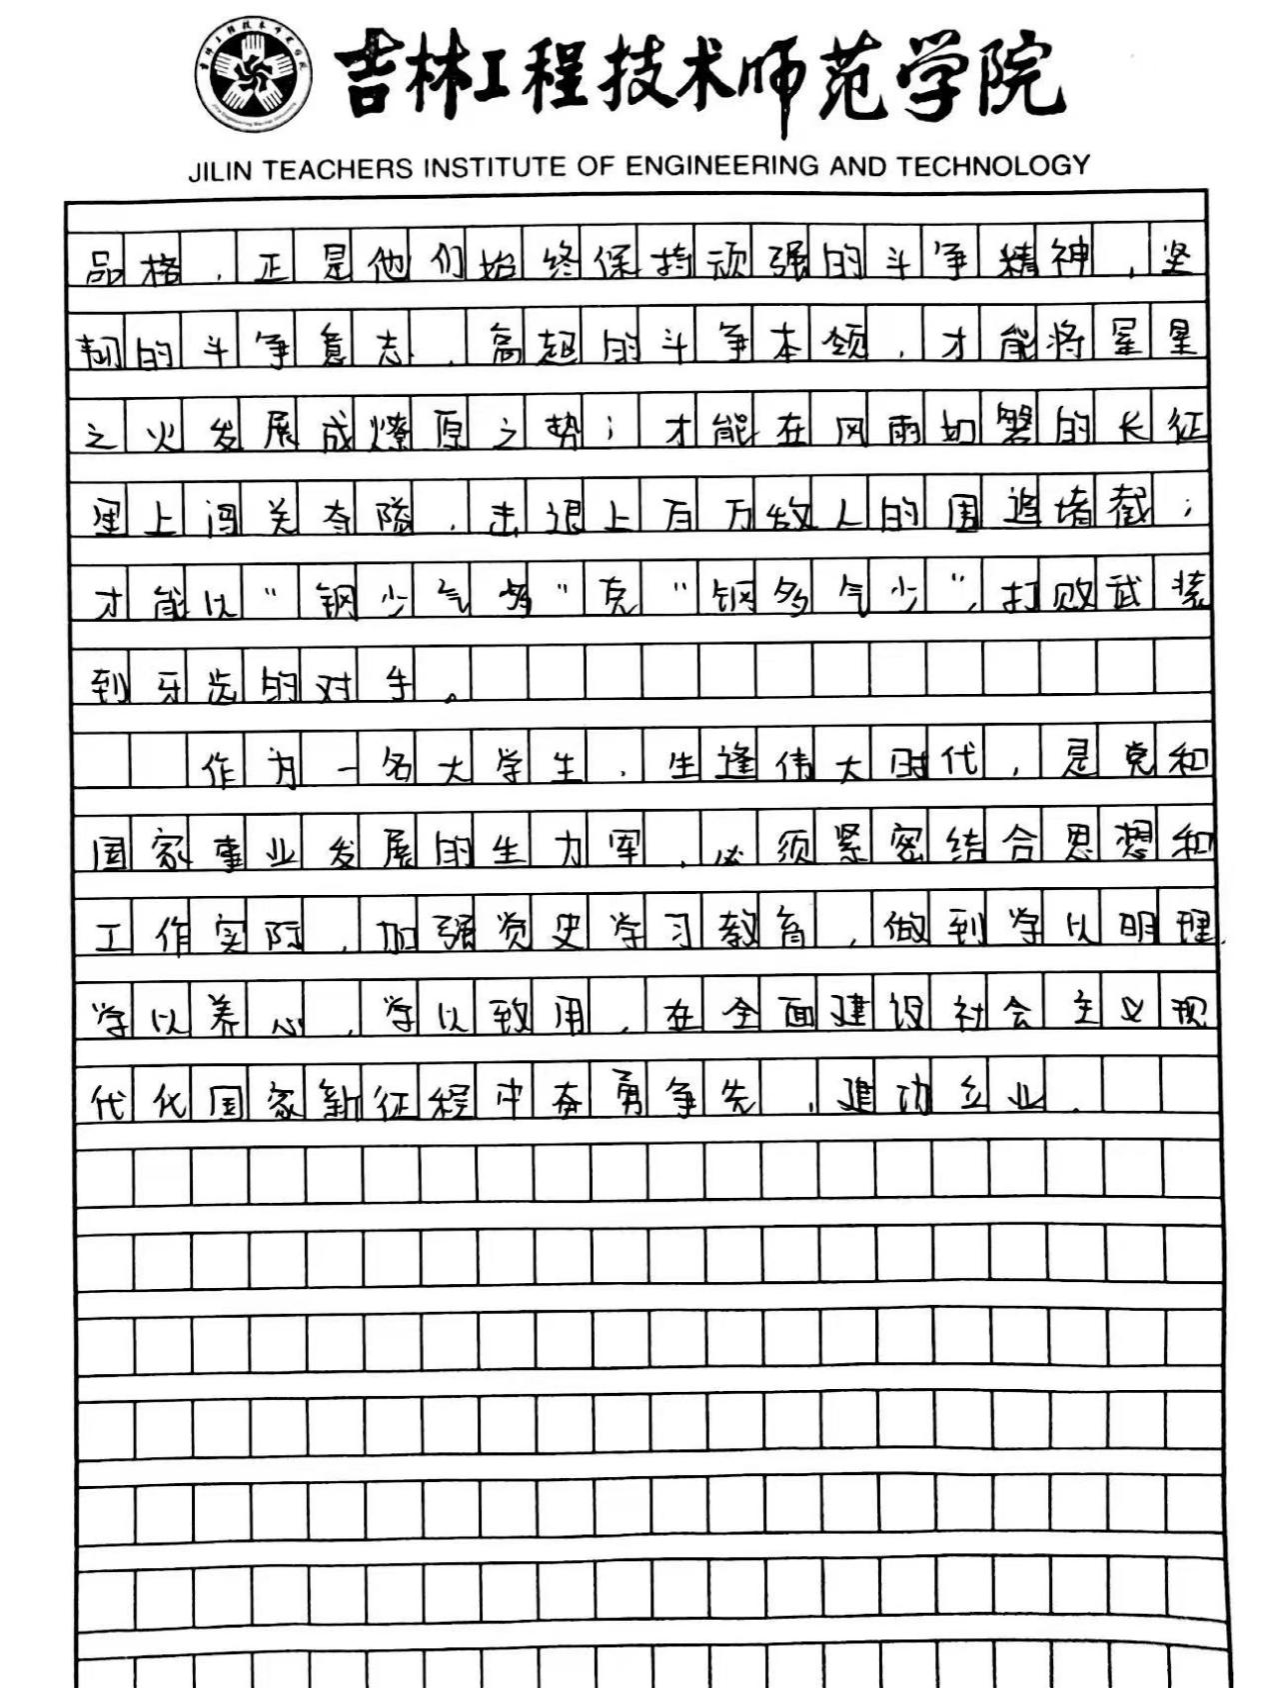 吉林工程技术师范学院
JILIN TEACHERS INSTITUTE OF ENGINEERING AND TECHNOLOGY
品格,正是他们始终保持顽强的斗争精神,坚
韧的斗争意志,高超的斗争本领,才能将星星
之火发展成燎原之势;才能在风雨如磐的长征
里上闯关夺隘,击退上百万敌人的围追堵截;
才能以“钢少气多”克“钢多气少”,打败武装
到牙齿的对手。
作为一名大学生,生逢伟大时代,是党和
国家事业发展的生力军,必须紧密结合思想和
工作实际,加强党史学习教育,做到学以明理,
学以养心,学以致用,在全面建设社会主义现
代化国家新征程中奋勇争先,建功立业.